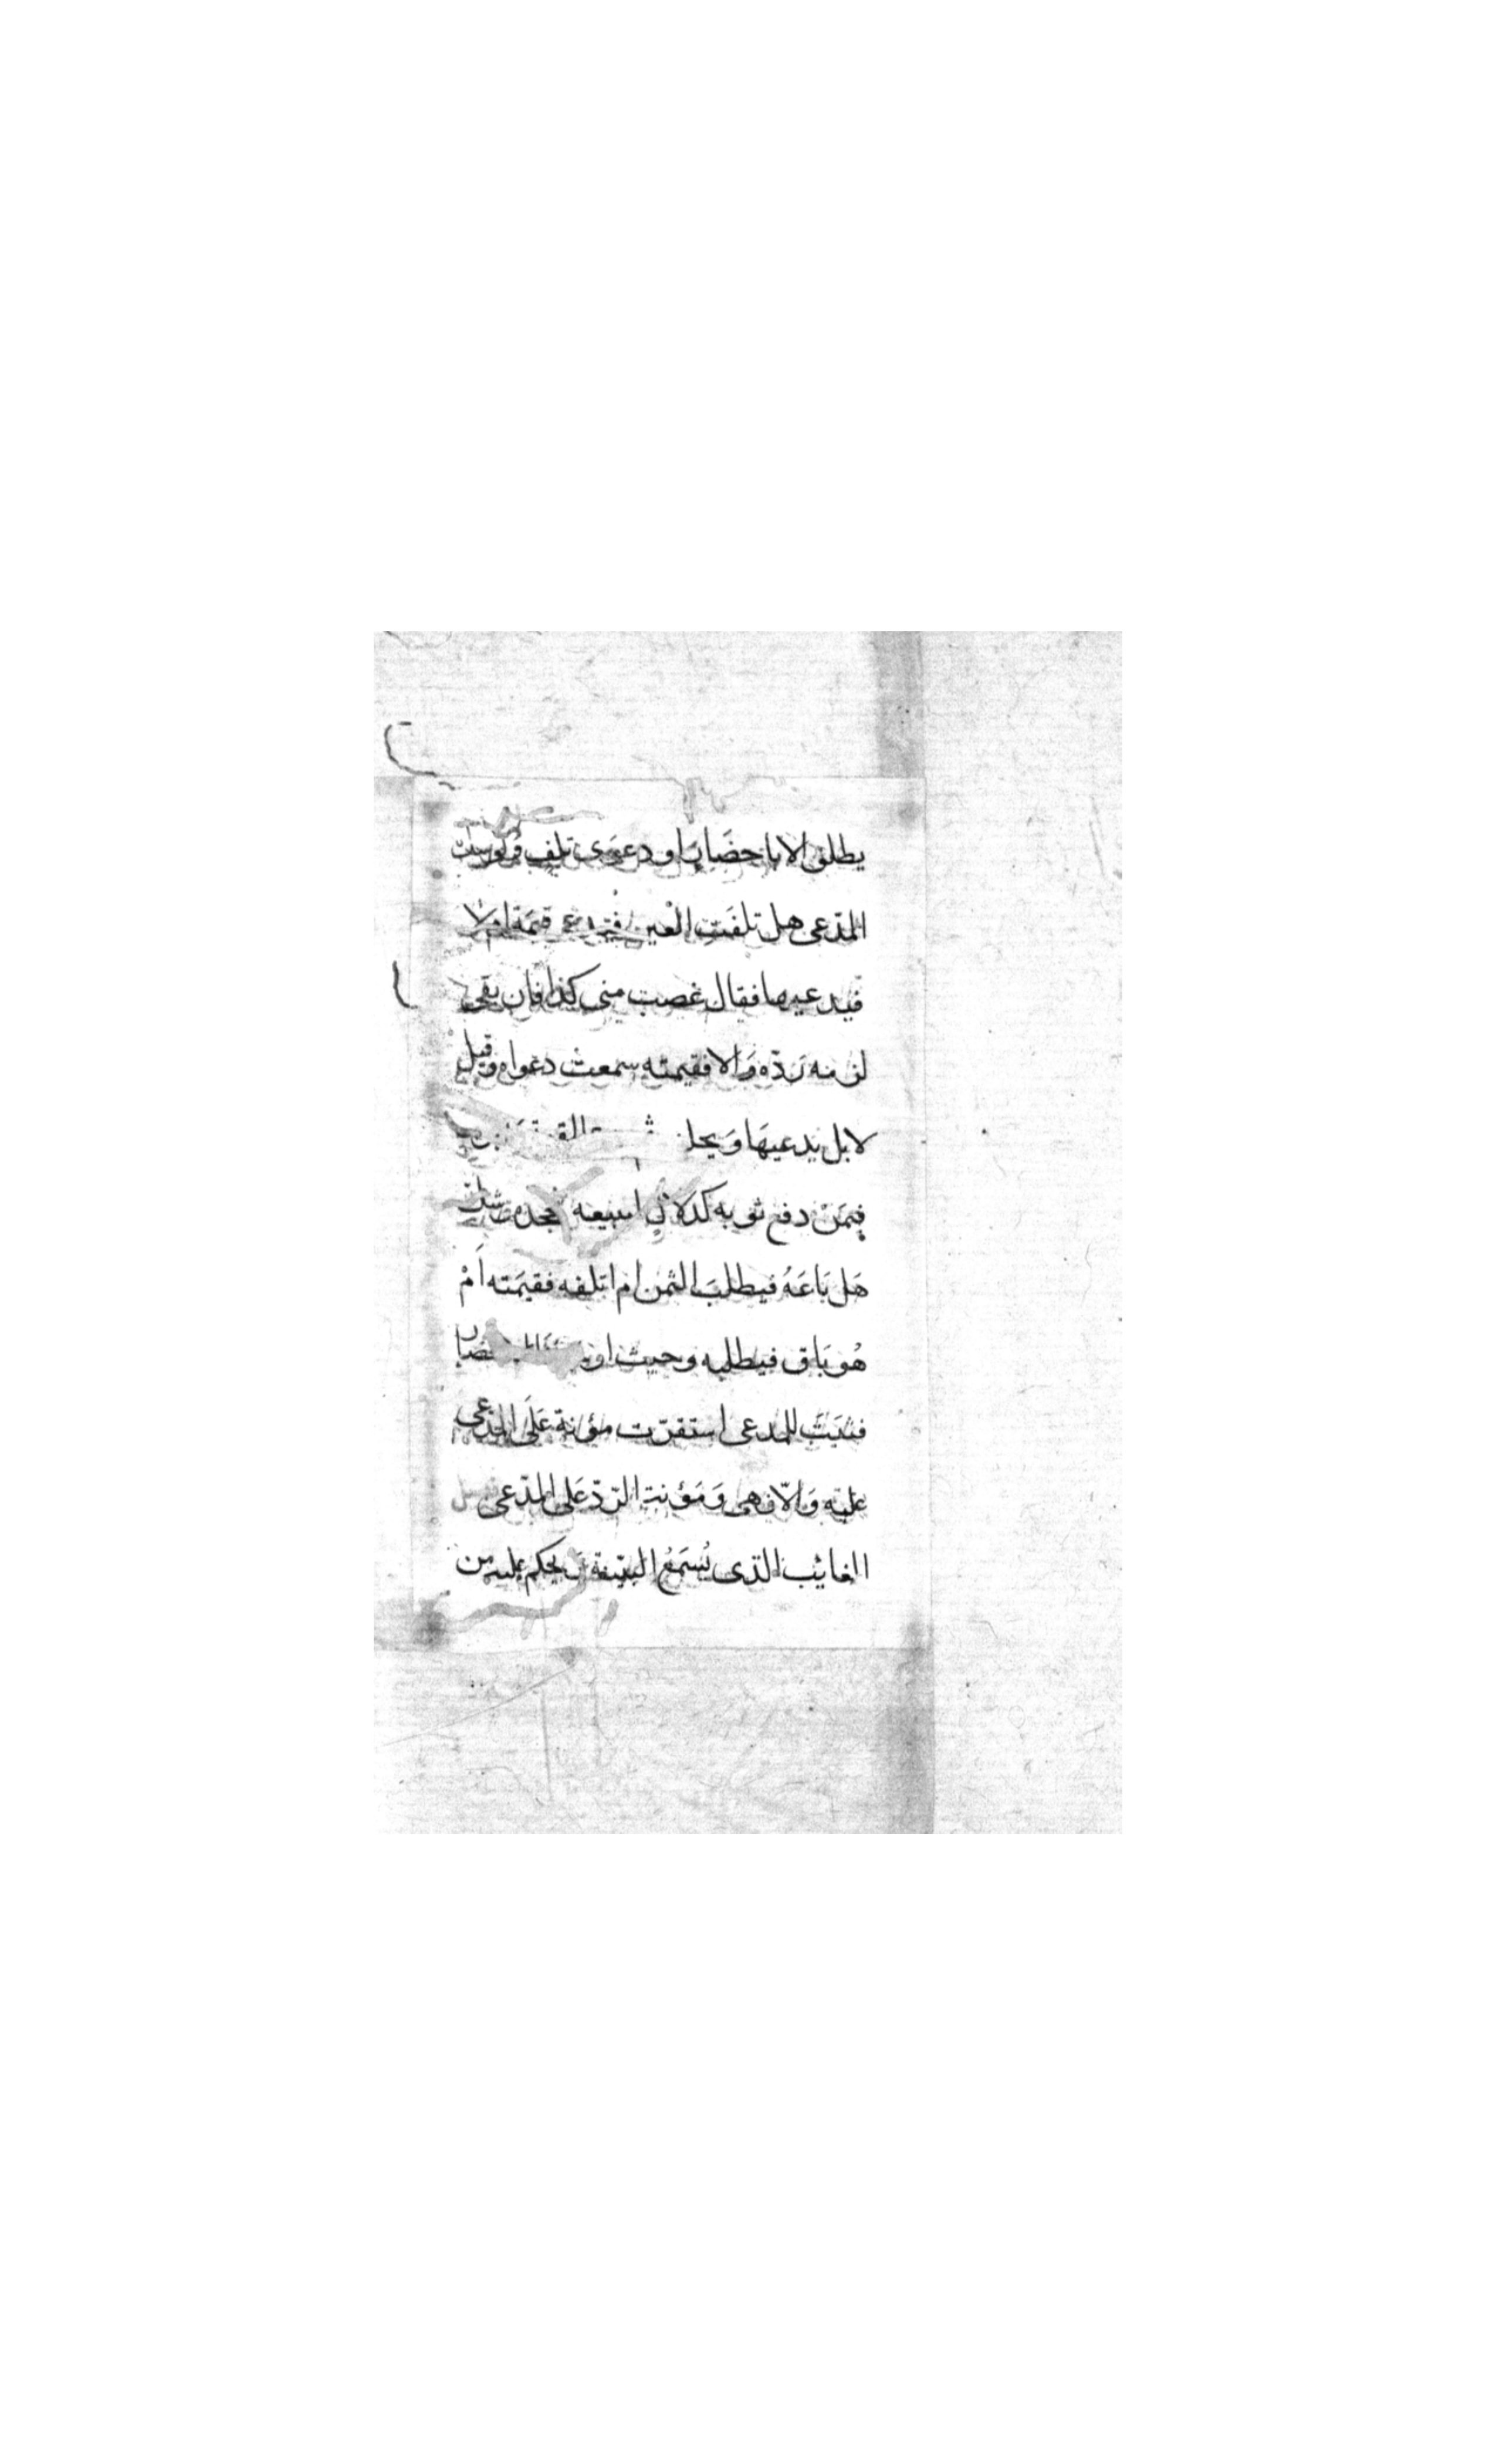 يطلق الا باحضار او دعوى تلف ولو شك
المدّعى هل تلفت العين فيدعى قيمة ام لا
فيدعيها فقال غصب منى كذا فان بقى
لزمه ردّه والا فقيمته سمعت دعواه وقيل
لا بل يدعيها ويحلفه
فيمن دفع ثوبه لدلال ليبيعه فجحده وشك
هَل بَاعَهُ فيطلبَ الثمن ام اتلفه فقيمَته اَمْ
هُو بَاق فيطلبه وحيث
فثبَتَ للمدعى استقرّت مؤنة عَلَى المدّعى
عليه وَالاّ فهى وَمَؤنة الردّ عَلى المدّعى
الغائب الذى تُسمَعُ البيّنة وَيحكم عليه من